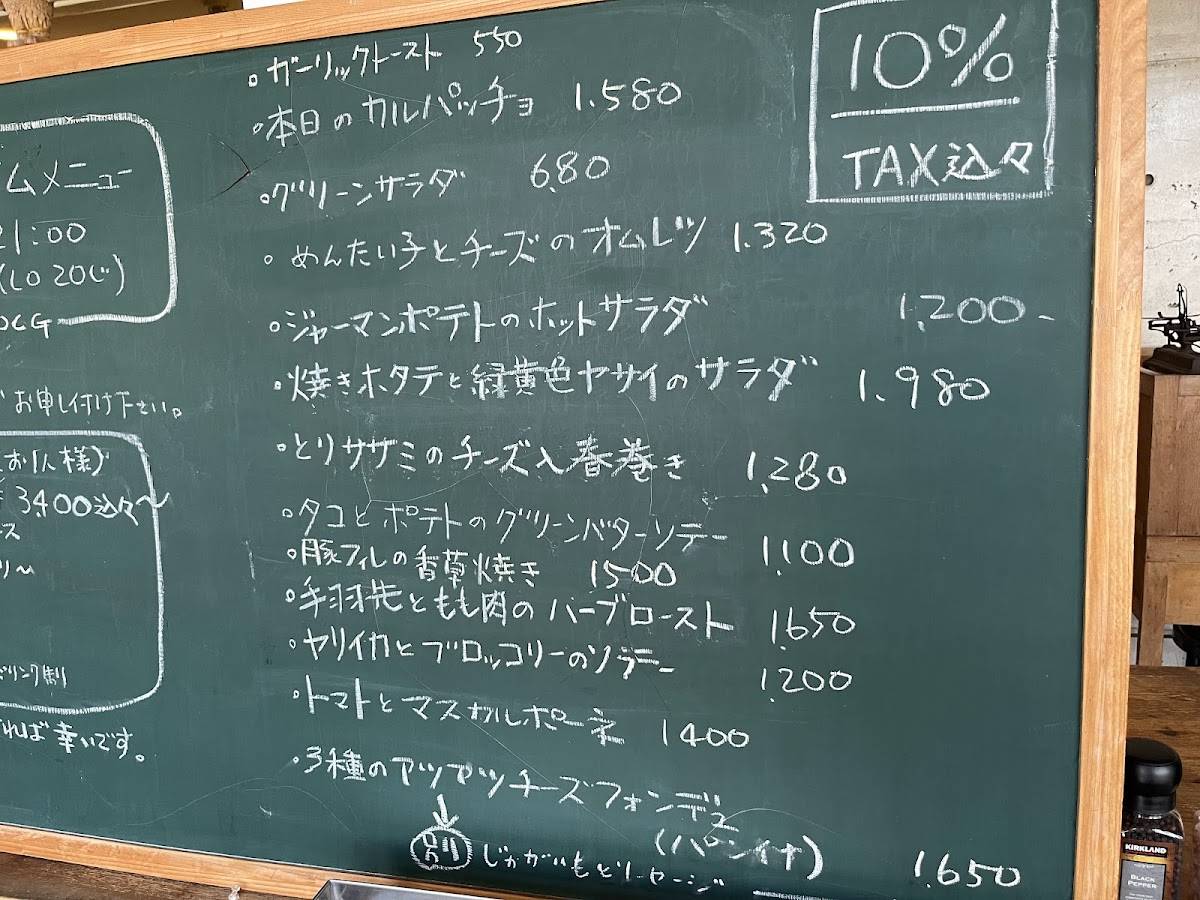 ムメニュー
21:00
(LO 20じ)
OCG
お申し付け下さい。
お1人様)
3,400込々〜
ス
リ〜
ドリンク制
れば幸いです。
・ガーリックトースト 550
・本日のカルパッチョ 1.580
・グリーンサラダ 680
・めんたい子とチーズのオムレツ 1.320
・ジャーマンポテトのホットサラダ 1,200-
・焼きホタテと緑黄色ヤサイのサラダ 1.980
・とりササミのチーズ入春巻き 1,280
・タコとポテトのグリーンバターソテー 1,100
・豚フィレの香草焼き 1500
・手羽先ともも肉のハーブロースト 1.650
・ヤリイカとブロッコリーのソテー 1.200
・トマトとマスカルポーネ 1400
・3種のアツアツチーズフォンデュ
(パンイナ) 1.650
↓
別 じゃがいもとソーセージ
10%
TAX込々
KIRKLAND
BLACK
PEPPER